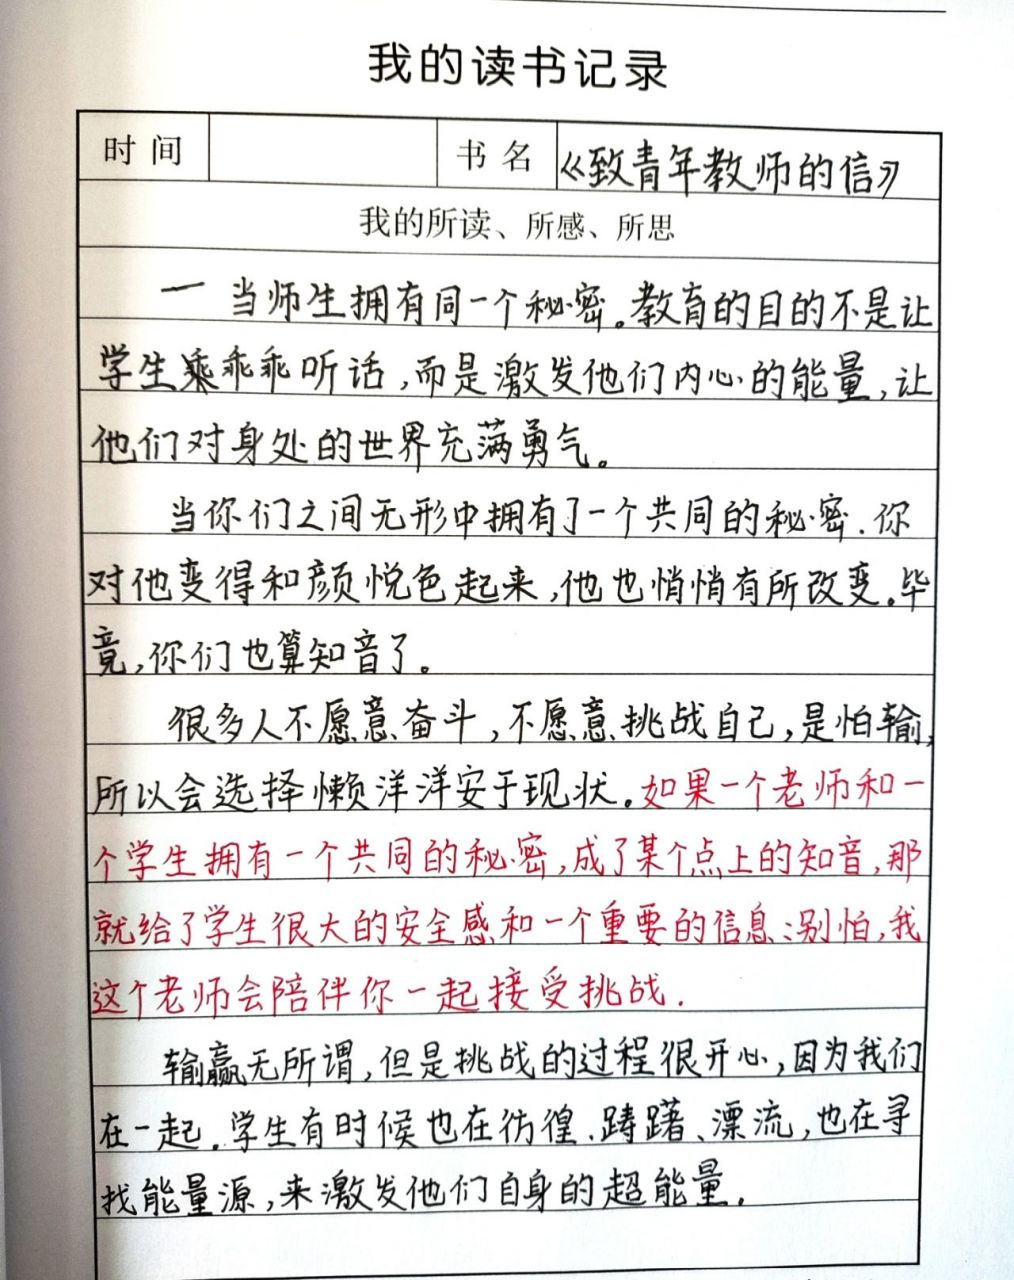 我的读书记录
时间 书名 《致青年教师的信》
我的所读、所感、所思
一 当师生拥有同一个秘密。教育的目的不是让
学生乘乖乖听话,而是激发他们内心的能量,让
他们对身处的世界充满勇气。
当你们之间无形中拥有了一个共同的秘密.你
对他变得和颜悦色起来,他也悄悄有所改变。毕
竟,你们也算知音了。
很多人不愿意奋斗,不愿意挑战自己,是怕输,
所以会选择懒洋洋安于现状。如果一个老师和一
个学生拥有一个共同的秘密,成了某个点上的知音,那
就给了学生很大的安全感和一个重要的信息:别怕,我
这个老师会陪伴你一起接受挑战.
输赢无所谓,但是挑战的过程很开心,因为我们
在一起.学生有时候也在彷徨、踌躇、漂流,也在寻
找能量源,来激发他们自身的超能量.